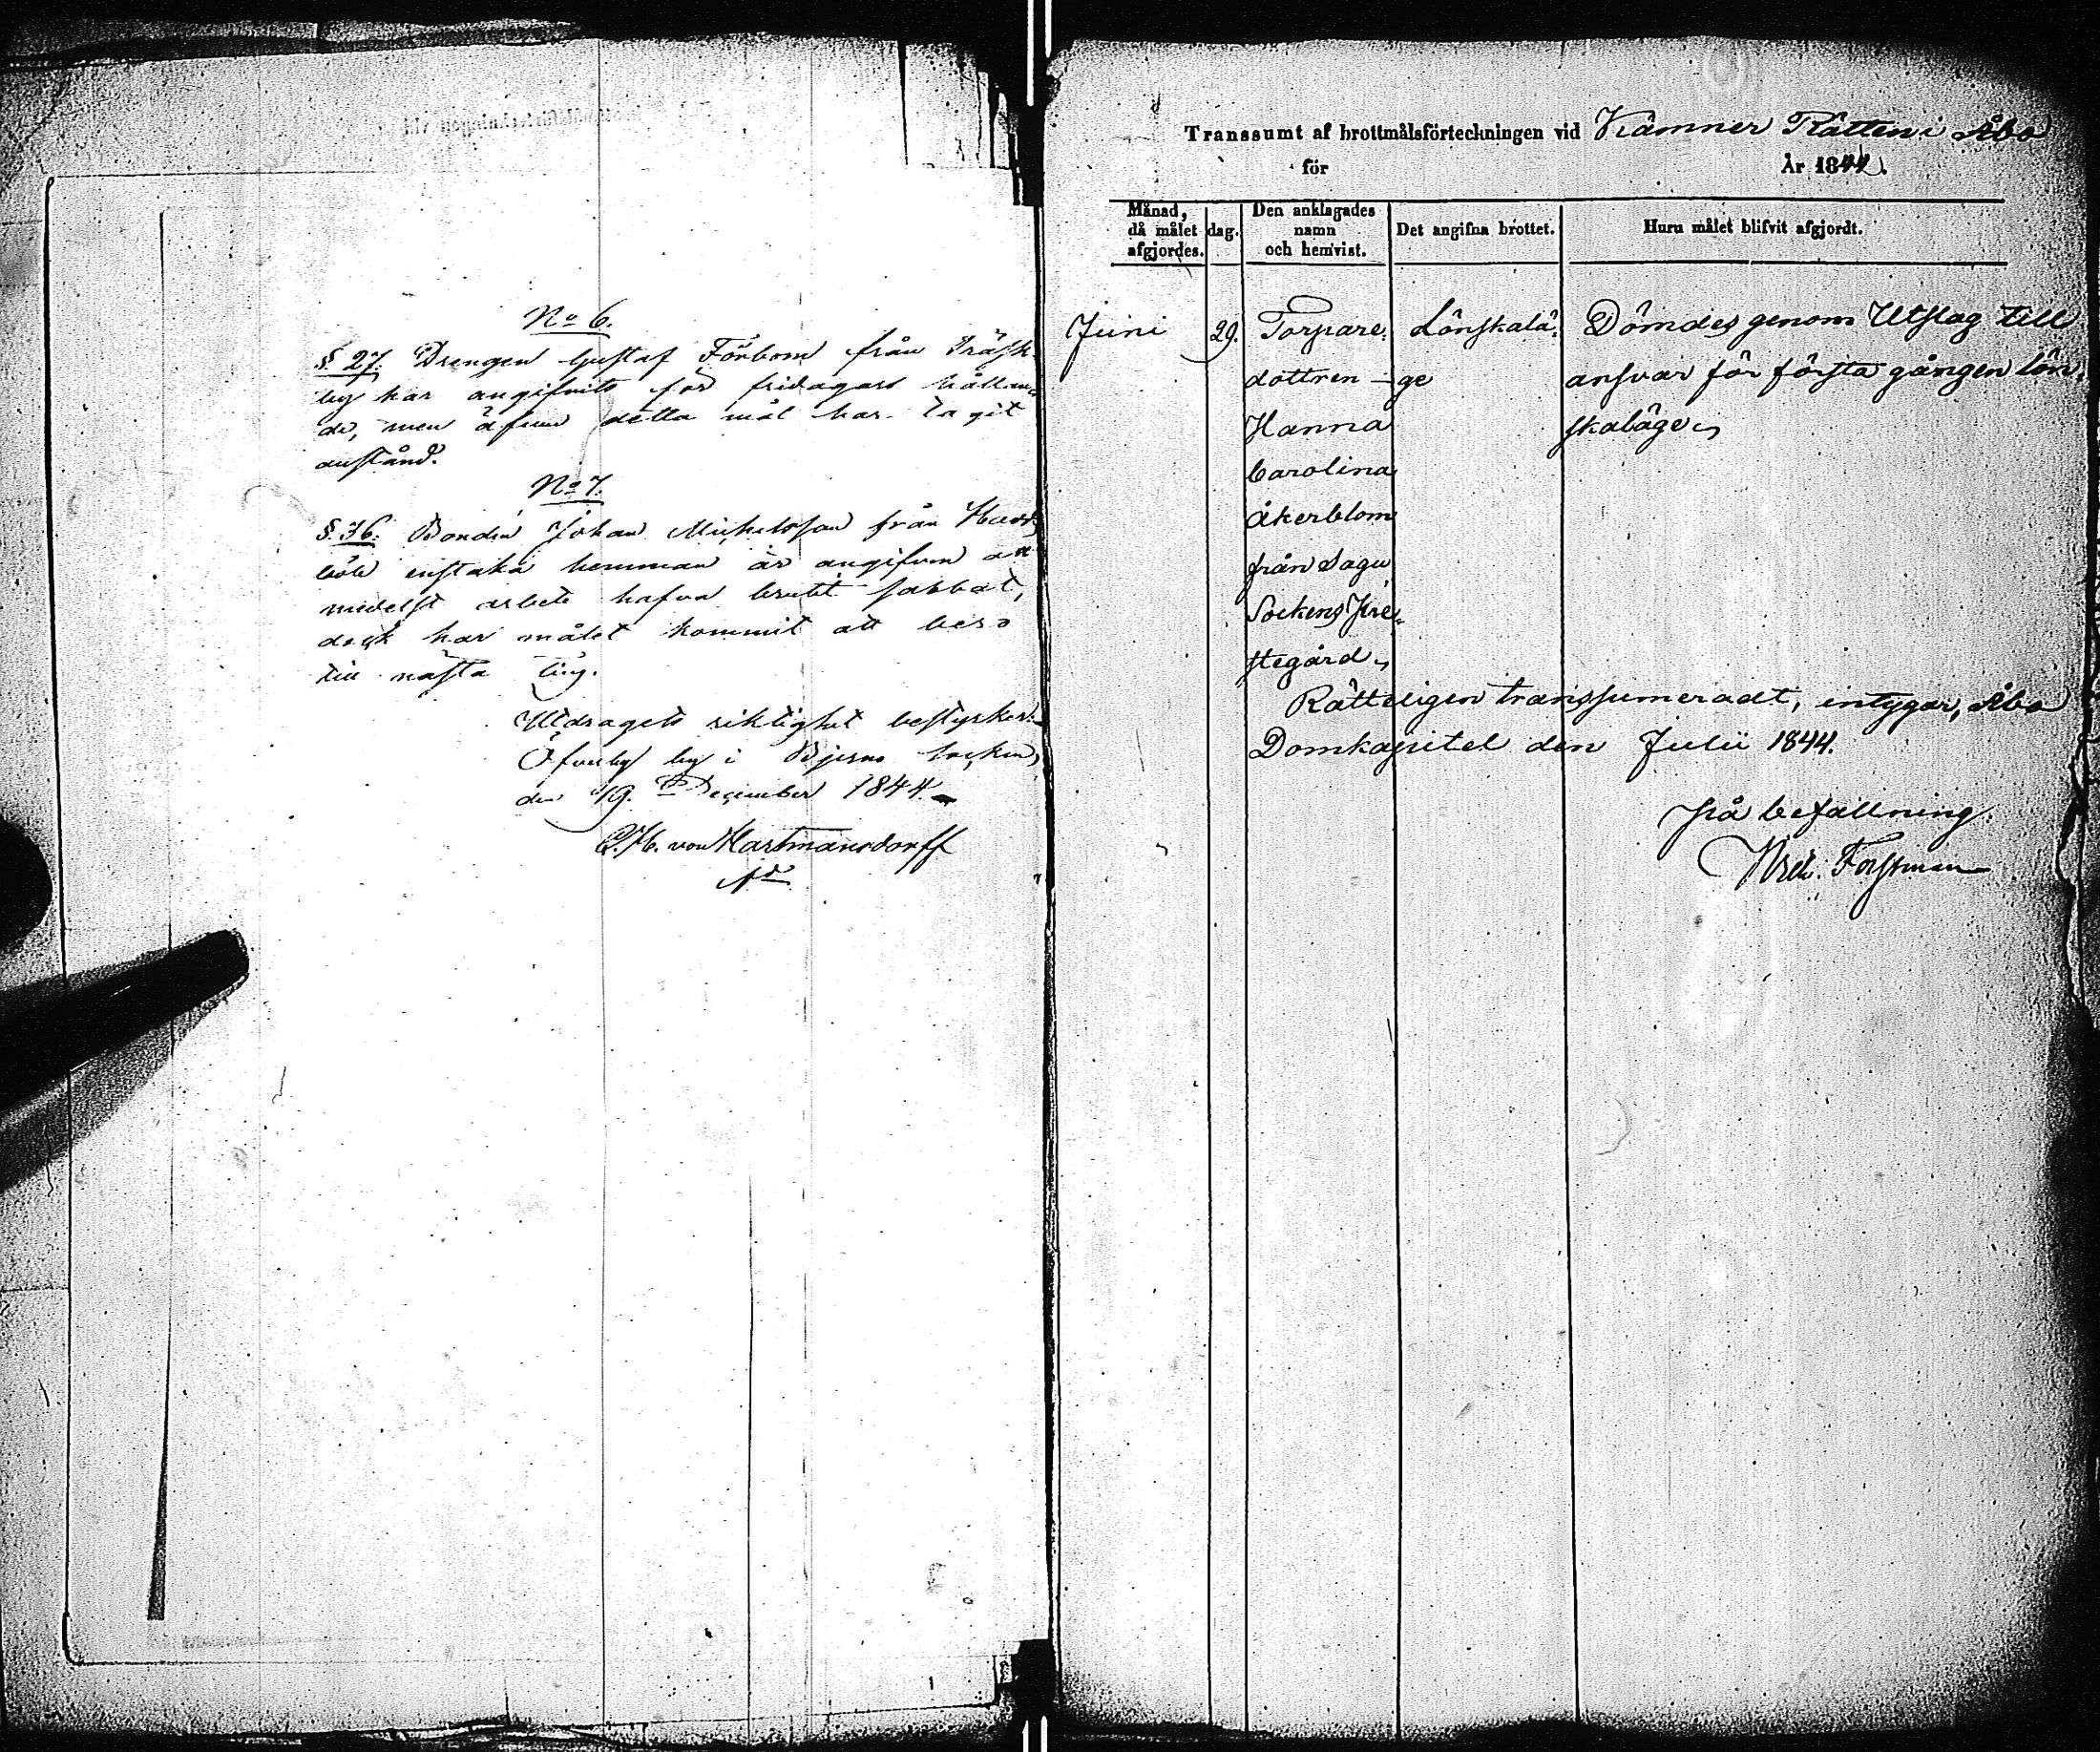 No 6.
§. 27. Drengen Gustaf Förbom från Träsk-
by har angifvits för fridagars hållan„
de, men äfven detta mål har tagit
anstånd.
No 7.
§. 36. Bonden Johan Michelsson från
böle enstaka hemman är angifven att
medelst arbete hafva brutit sabbat,
dock har målet kommit att bero
till nästa ting.
Utdragets riktighet bestyrker.
Öfverby by i Bjerno socken,
den 19. December 1844.
von Hartmansdorff
Transsumt af brottmålsförteckningen vid Kämner Rätten i Åbo
för År 1844.
Månad, då målet afgjordes. dag. Den anklagades namn och hemvist. Det angifna brottet. Huru målet blifvit afgjordt.
Juni 29. Torpare- Lönskalä- Dömdes genom Utslag till
dottren ge ansvar för första gången lön-
Hanna skaläge.
Carolina
Åkerblom
från Sagu
Sockens Pre„
stegård.
Rätteligen transsumeradt, intygar, Åbo
Domkapitel den Julii 1844.
På befallning.
Forssman